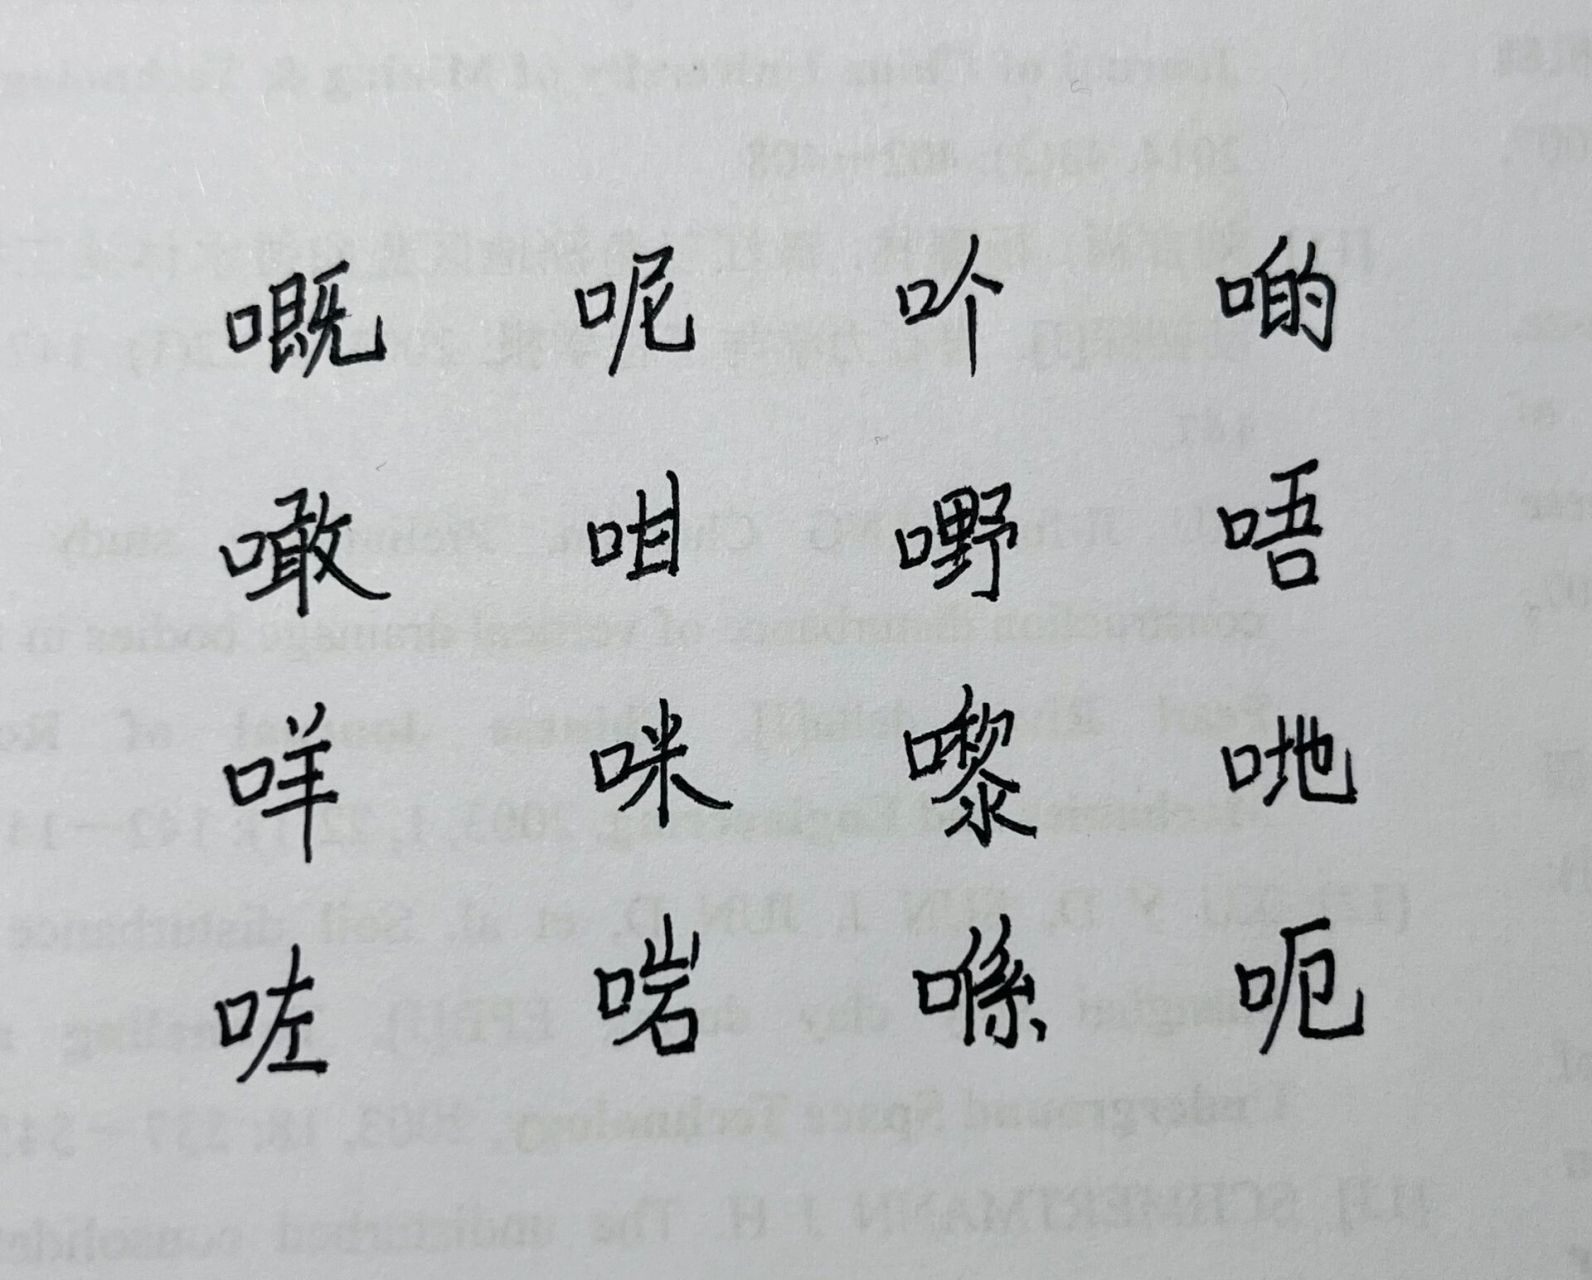 嘅 呢 𠮶 啲
噉 咁 嘢 唔
咩 咪 嚟 哋
咗 啱 喺 呃